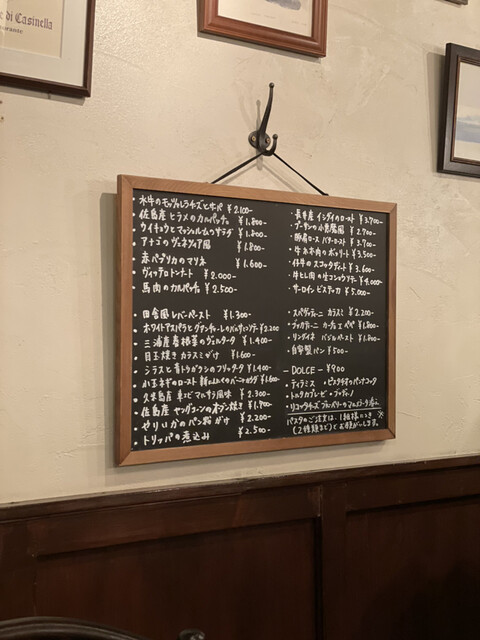 di Casinella
・水牛のモッツァレラチーズと生ハム ¥2.100-
・佐島産 ヒラメのカルパッチョ ¥1.800-
・ウイキョウとマッシュルームのサラダ ¥1.800-
・アナゴのヴェネツィア風 ¥1.800-
・赤パプリカのマリネ ¥1.600-
・ヴィッテロトンナート ¥2.000-
・馬肉のカルパッチョ ¥2.500-
・田舎風レバーペースト ¥1.300-
・ホワイトアスパラとグアンチャーレのバルサミコソテー ¥2.200
・三浦産 春 ¥1.400-
・目玉焼き カラスミがけ ¥1.600-
・シラスと青トウガラシのフリッタータ ¥1.400-
・小玉ネギのロースト ¥1.600-
・マルサラ風味 ¥2.300-
・佐島産 オーブン焼き ¥1.900-
・やりいかのパン粉がけ ¥2.200
・トリッパの煮込み ¥2.500-
・長井産 イシダイのロースト ¥3.700-
・ブーダンの小悪魔風 ¥2.900-
・ロース バターロースト ¥3.700-
・牛ホホ肉のボリート ¥3.500-
・仔牛のスコッタディート ¥3.600-
・牛ヒレ肉の ソテー ¥4.000-
・サーロイン ビステッカ ¥5.000-
・スパゲッティーニ カラスミ ¥2.200-
・ブカティーニ カーチョエペペ ¥1.800-
・リングイネ バジルペースト ¥1.800-
・自家製パン ¥500-
- DOLCE - ¥900
・ティラミス ・ピスタチオのパンナコッタ
・トルタカプレーゼ・ブディーノ
・リコッタチーズ
パスタのご注文は、1組様につき ※
(2種類まで)とお願いします。